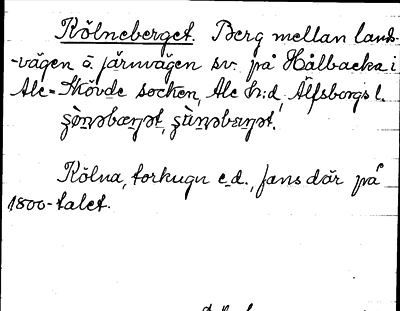 Kölneberget. Berg mellan lands-
-vägen o. järnvägen sv. på Hålbacka i
Ale-Skövde socken, Ale h:d, Älfsborgs l.
Kölna, torkugn e.d., fans där på
1800-talet.